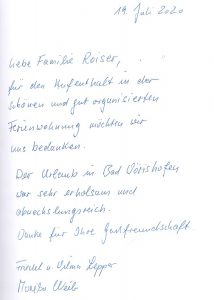 19. Juli 2020
Liebe Familie Raiser,
für den Aufenthalt in der
schönen und gut organisierten
Ferienwohnung möchten wir
uns bedanken.
Der Urlaub in Bad Wörishofen
war sehr erholsam und
abwechslungsreich.
Danke für Ihre Gastfreundschaft.
u. Lepper
Monika Weib